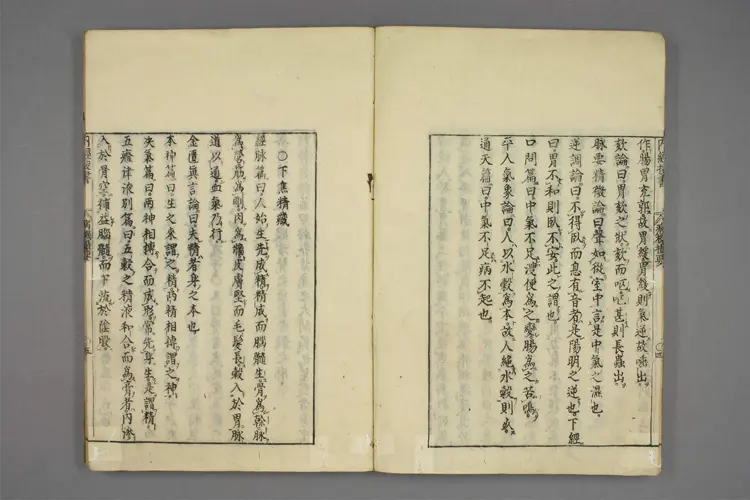 作腸胃充郭故胃緩胃緩則氣逆故唾出
欬論曰胃欬之狀欬而嘔嘔甚則長蟲出
脉要精微論曰聲如從室中言是中氣之濕也
逆調論曰不得臥而息有音者是陽明之逆也下經
曰胃不和則臥不安此之謂也
口問篇曰中氣不足溲便爲之變腸爲之苦鳴
平人氣象論曰人以水穀爲本故人絕水穀則死
通天篇曰中氣不足病不起也
○下焦精
經脉篇曰人始生先成精精成而腦髓生骨爲幹脉
爲營筋爲剛肉爲墻皮膚堅而毛髮長穀入於胃脉
道以通血氣乃行
金匱眞言論曰夫精者身之本也
本神篇曰生之來謂之精兩精相搏謂之神
決氣篇曰兩神相搏合而成形常先身生是謂精
五癃津液別篇曰五穀之精液和合而爲膏者內滲
入於骨空補益腦髓而下流於陰股
內經